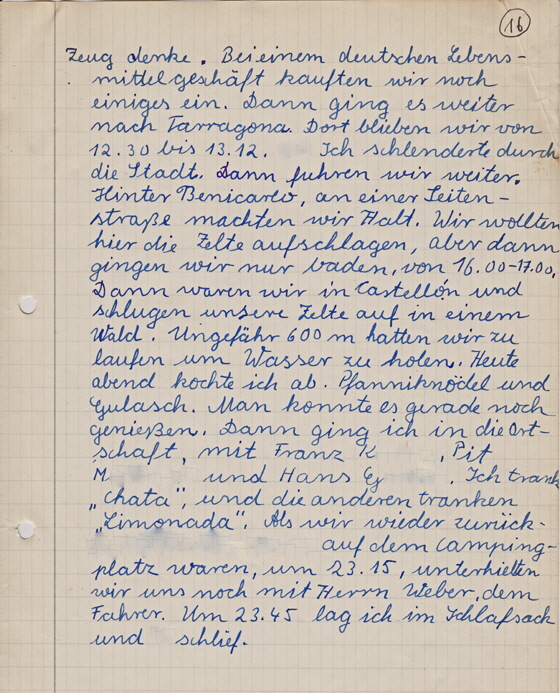 16
Zeug denke. Bei einem deutschen Lebens-
mittelgeschäft kauften wir noch
einiges ein. Dann ging es weiter
nach Tarragona. Dort blieben wir von
12.30 bis 13.12. Ich schlenderte durch
die Stadt. Dann fuhren wir weiter.
Hinter Benicarlo, an einer Seiten-
straße machten wir Halt. Wir wollten
hier die Zelte aufschlagen, aber dann
gingen wir nur baden, von 16.00-17.00.
Dann waren wir in Castellón und
schlugen unsere Zelte auf in einem
Wald. Ungefähr 600 m hatten wir zu
laufen um Wasser zu holen. Heute
abend kochte ich ab. Pfanniknödel und
Gulasch. Man konnte es gerade noch
genießen. Dann ging ich in die Ort-
schaft, mit Franz K , Pit
M und Hans Eg . Ich trank
„Chata“, und die anderen tranken
„Limonada“. Als wir wieder zurück-
auf dem Camping-
platz waren, um 23.15, unterhielten
wir uns noch mit Herrn Weber, dem
Fahrer. Um 23.45 lag ich im Schlafsack
und schlief.